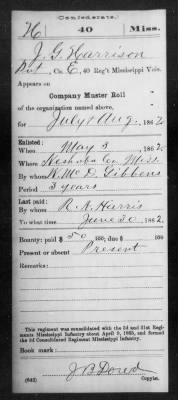 (Confederate.)
H 40 Miss.
J. G. Harrison
Pvt, Co. E, 40 Reg't Mississippi Vols.
Appears on
Company Muster Roll
of the organization named above,
for July & Aug, 1862
Enlisted:
When May 3 1862
Where Neshoba Co. Miss.
By whom W. McD. Gibbens
Period 3 years
Last paid:
By whom R. N. Harris
To what time June 30, 1862
Bounty: paid $ 50 /100; due $ /100
Present or absent Present
Remarks:
This regiment was consolidated with the 3d and 31st Regiments
Mississippi Infantry about April 9, 1865, and formed
the 3d Consolidated Regiment Mississippi Infantry.
Book mark:
(642) J B Dowd
Copyist.